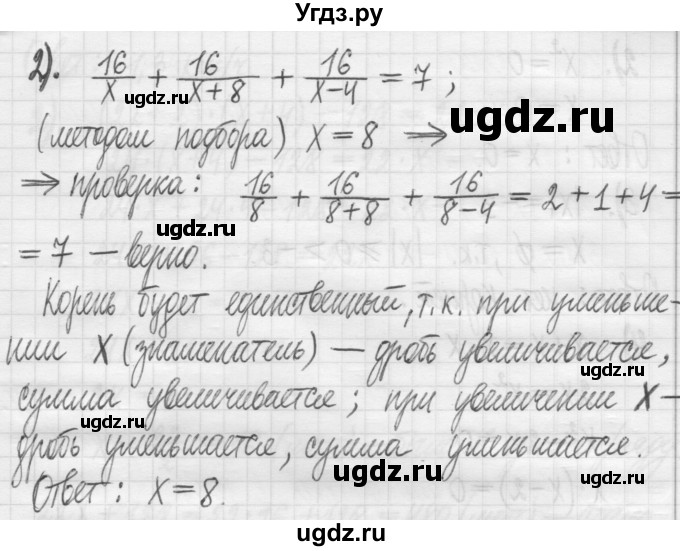 Угдз.ру
2). 16/x + 16/(x+8) + 16/(x-4) = 7 ;
ugdz.ru
ugdz.ru
(методом подбора) x = 8 ⇒
⇒ проверка: 16/8 + 16/(8+8) + 16/(8-4) = 2+1+4=
ugdz.ru
= 7 — верно.
ugdz.ru
Корень будет единственный, т.к. при уменьше-
нии x (знаменатель) — дробь увеличивается,
ugdz.ru
сумма увеличивается; при увеличении x —
ugdz.ru
дробь уменьшается, сумма уменьшается.
ugdz.ru
Ответ: x = 8.
ugdz.ru
ugdz.ru